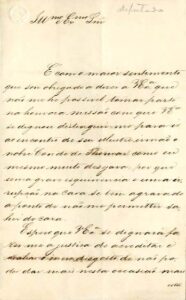 deputado
Illmo Exmo Snr
É com o maior sentimento
que sou obrigado a dizer a VExa que
não me é possivel tomar parte
na honrosa missão com que VExa
se dignou distinguir me para ir
ao encontro de seu illustre irmão o
nobre Conde de Thomar como eu
anciosamente desejava, por que
uma grave esquinencia e uma e-
rupção na cara se tem agravado
a ponto de não me permittir sa-
hir de casa.
Espero que VExa se dignará fa-
zer me a justiça de acreditar
realis o meu desgosto de não po-
der dar mais nesta occasião mais